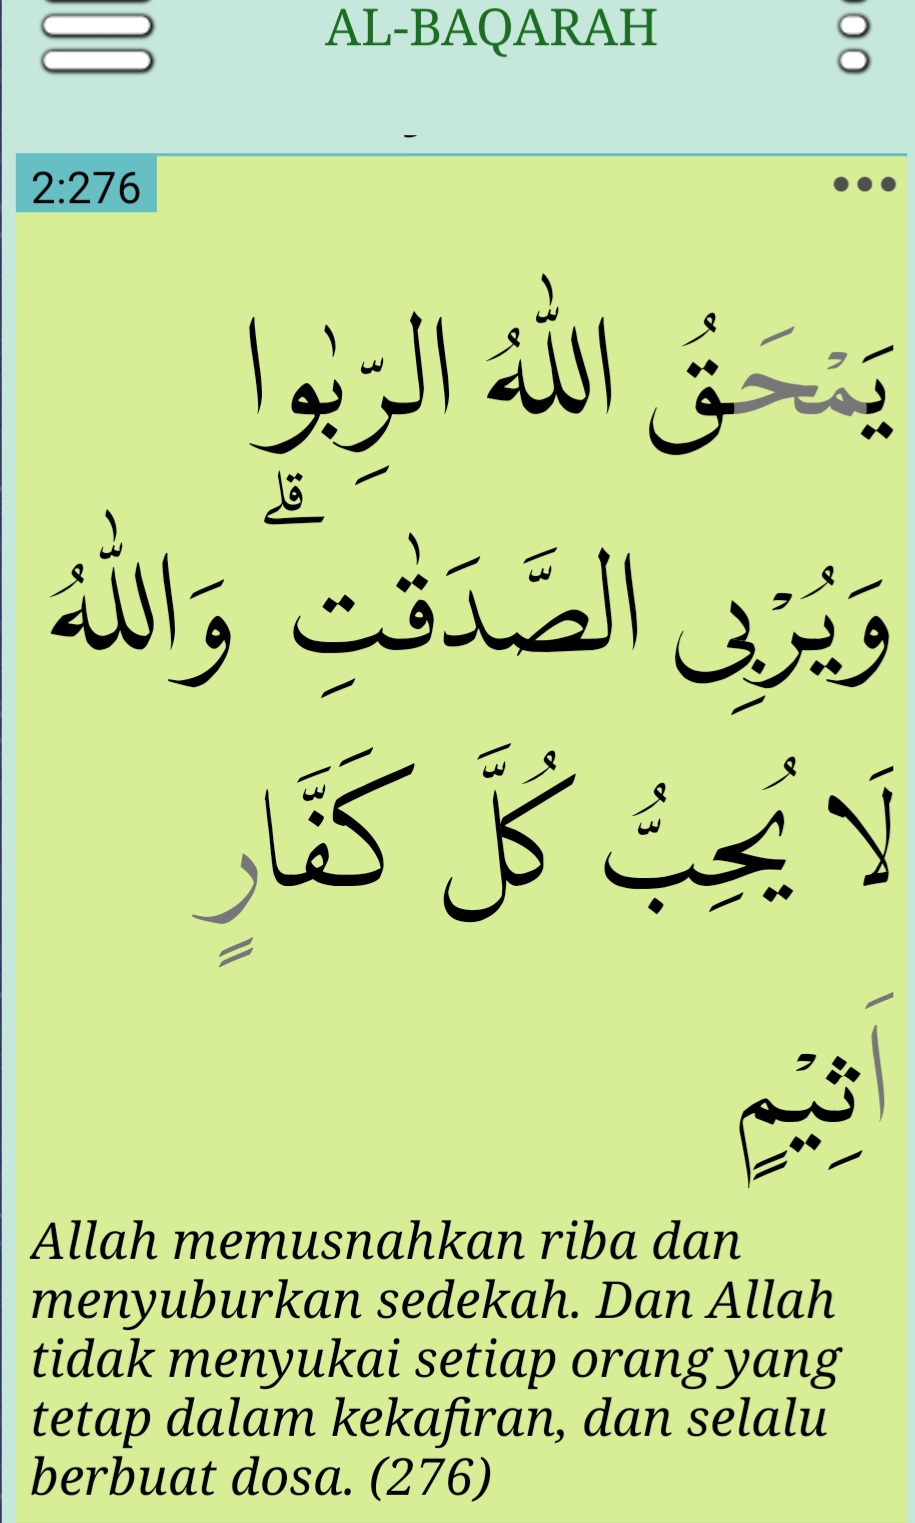 AL-BAQARAH
2:276
يَمْحَقُ اللّٰهُ الرِّبٰوا
وَيُرْبِى الصَّدَقٰتِ ۗ وَاللّٰهُ
لَا يُحِبُّ كُلَّ كَفَّارٍ
اَثِيْمٍ
Allah memusnahkan riba dan
menyuburkan sedekah. Dan Allah
tidak menyukai setiap orang yang
tetap dalam kekafiran, dan selalu
berbuat dosa. (276)